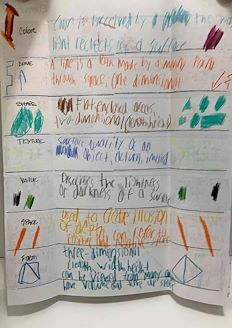 Color
Color is perceived by the way
light reflects off a surface
LINE
A line is a path made by a moving point
through space, one dimensional
SHAPE
Flat enclosed areas,
two-dimensional
TEXTURE
Surface quality of an
object, actual, implied
VALUE
Describes the lightness
or darkness of a surface
SPACE
used to create illusion
of depth
Form
three-dimensional
length width height
can be viewed from many
have volume and take up space